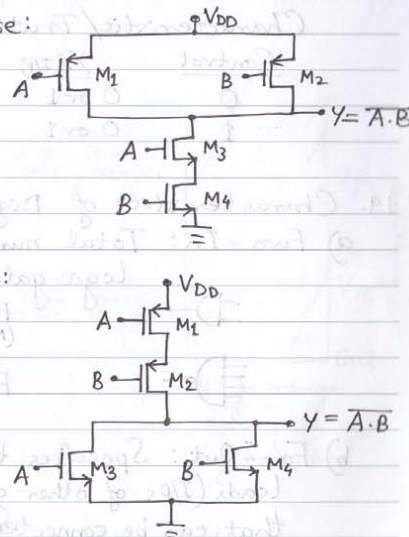 se:
V_DD
A M1 B M2
Y = \overline{A.B}
A M3
B M4
V_DD
A M1
B M2
Y = \overline{A.B}
A M3 B M4